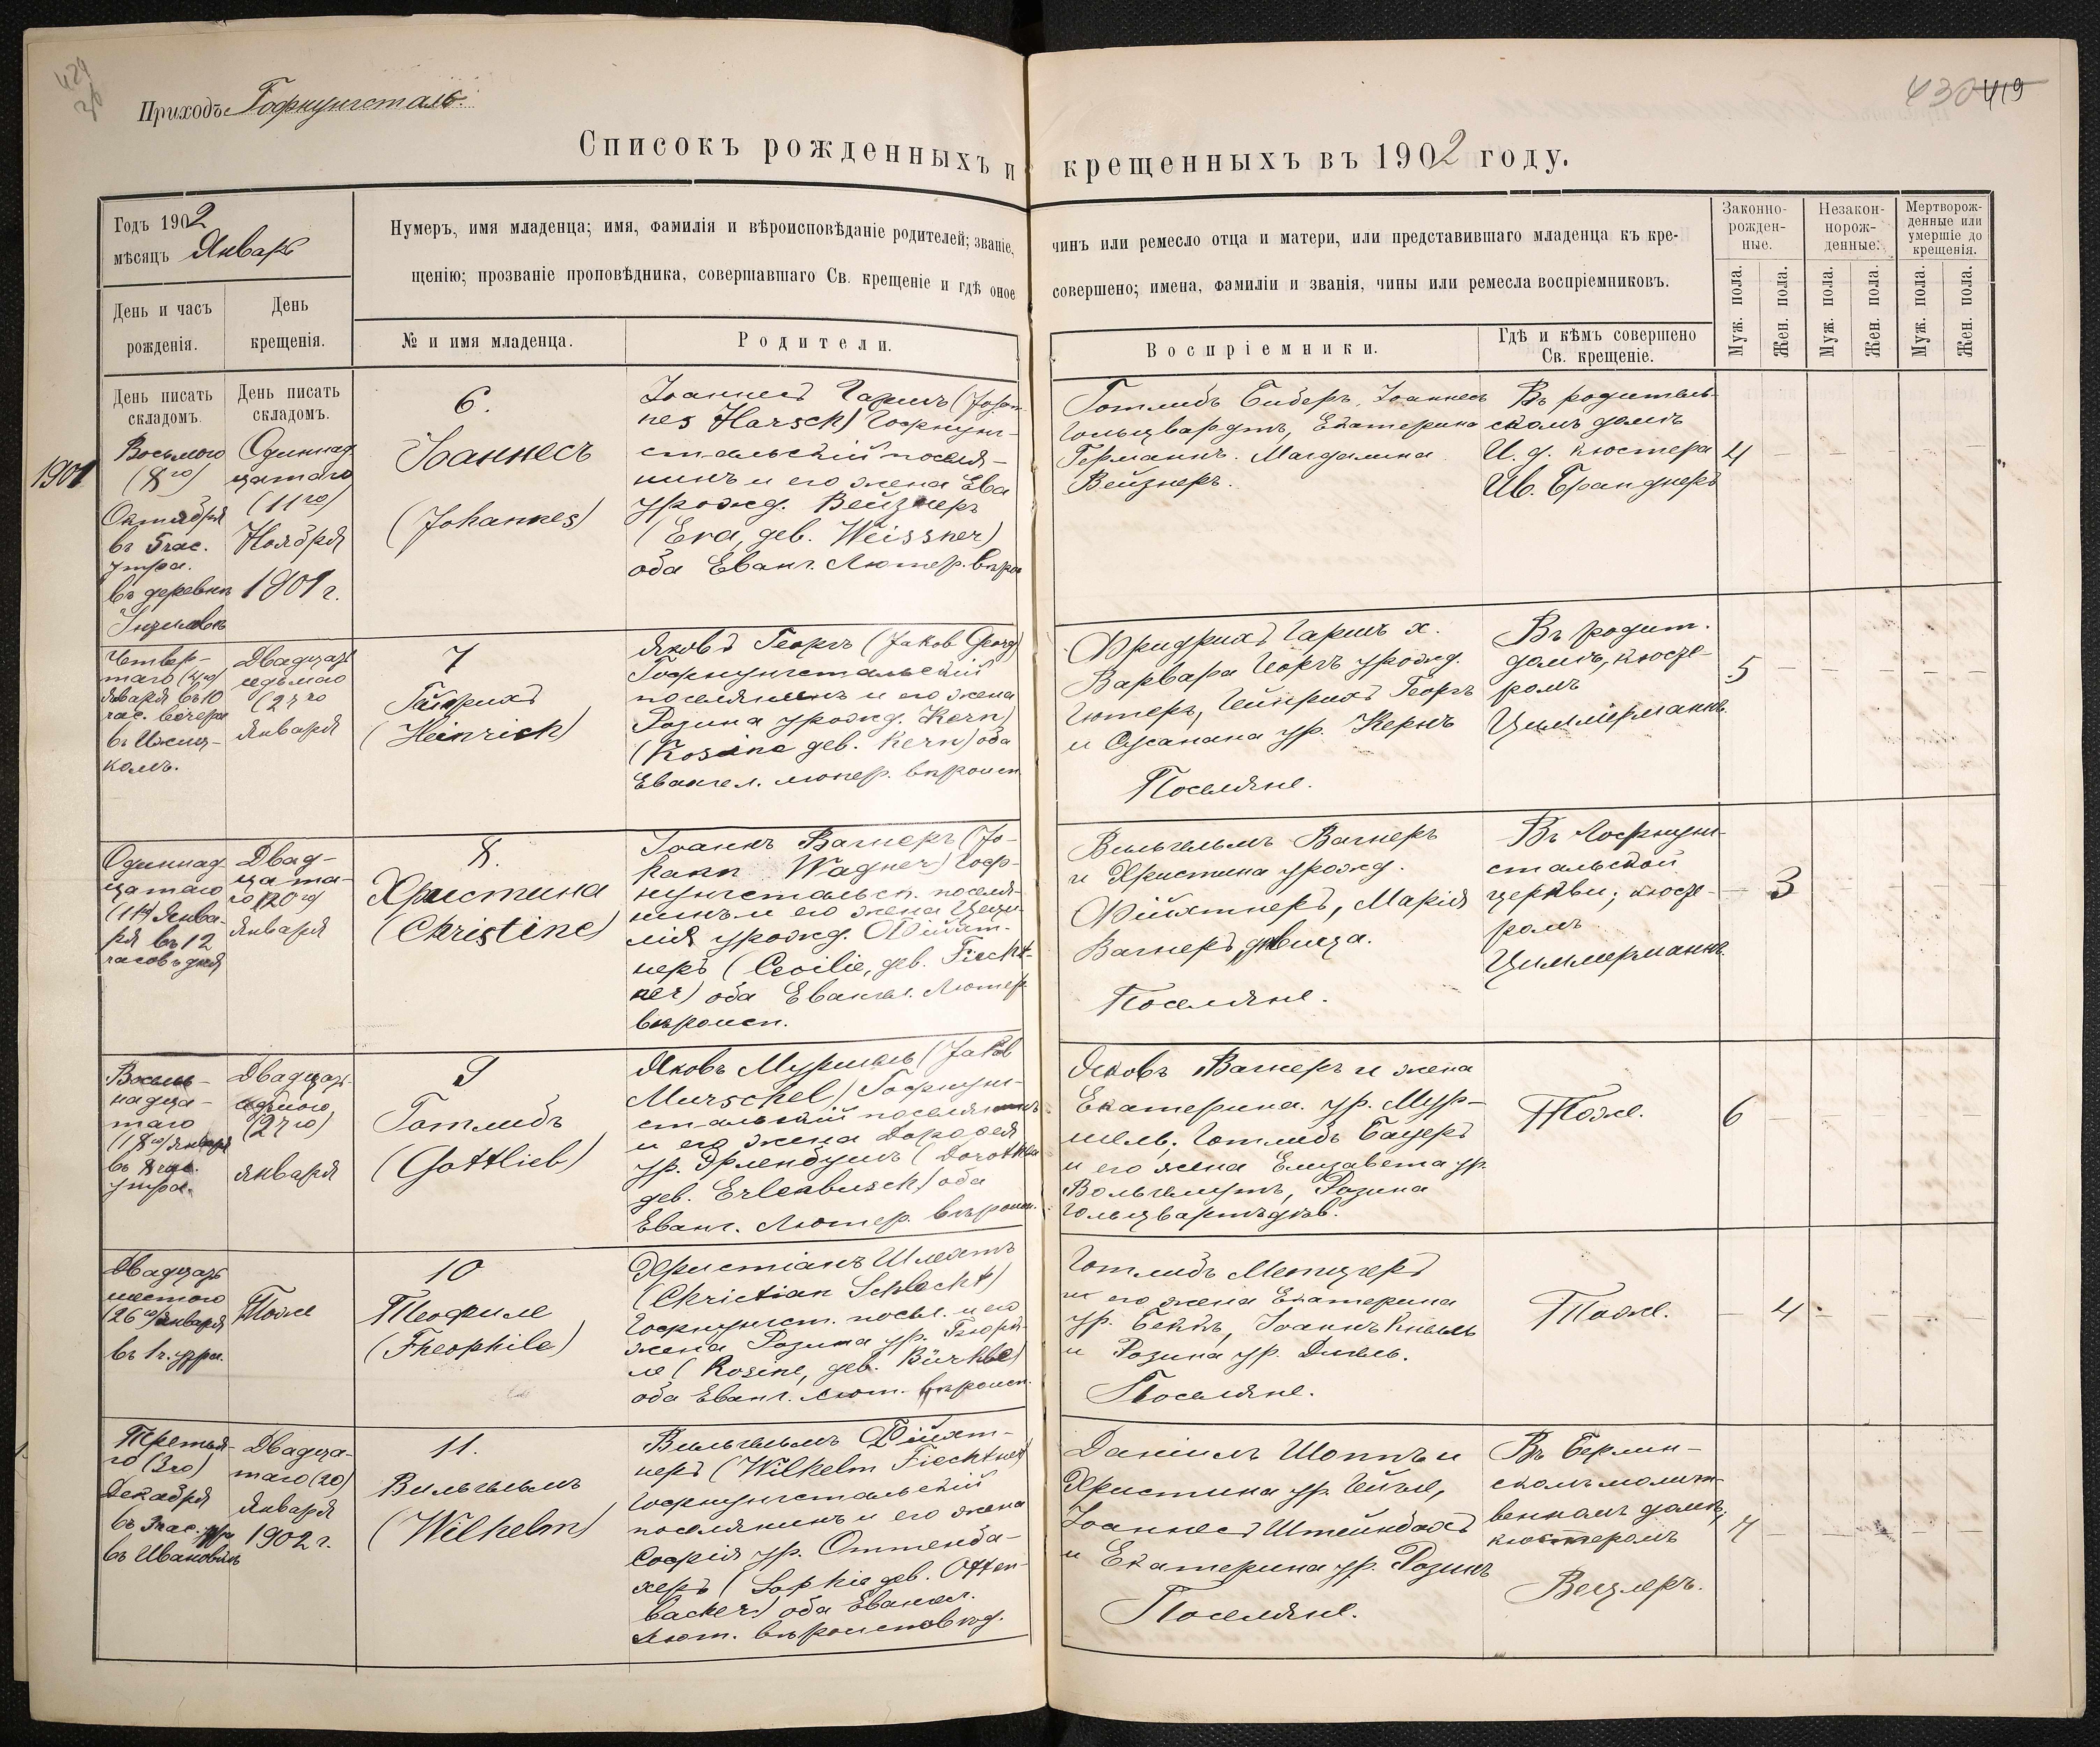 424
Приходъ Гофнунгсталь.
430 419
Списокъ рожденныхъ и крещенныхъ въ 1902 году.
Годъ 1902
мѣсяцъ Январь
Нумеръ, имя младенца; имя, фамилія и вѣроисповѣданіе родителей; званіе,
щенію; прозваніе проповѣдника, совершавшаго Св. крещеніе и гдѣ оное
чинъ или ремесло отца и матери, или представившаго младенца къ кре-
совершено; имена, фамиліи и званія, чины или ремесла воспріемниковъ.
Законно-
рожден-
ные.
Незакон-
норож-
денные.
Мертворож-
денные или
умершіе до
крещенія.
Муж. пола.
Жен. пола.
Муж. пола.
Жен. пола.
Муж. пола.
Жен. пола.
День и часъ
рожденія.
День
крещенія.
№ и имя младенца.
Родители.
Воспріемники.
Гдѣ и кѣмъ совершено
Св. крещеніе.
День писать
складомъ.
День писать
складомъ.
1901
Восьмого
(8го)
Октября
въ 5 час.
утра.
въ деревнѣ
Одиннад
цатаго
(11го)
Ноября
1901 г.
6.
Іоаннесъ
(Johannes)
Іоаннесъ Гаршъ (Johan-
nes Harsch) Гофнунг-
стальскій поселя-
нинъ и его жена Ева
урожд. Вейзнеръ
(Eva, geb. Weissner)
оба Еванг. Лютер. вѣрои
Готлибъ Биберъ, Іоаннесъ
Гольцвартъ, Екатерина
Германнъ. Магдалина
Вейзнеръ.
Въ родитель-
скомъ домѣ
И. д. кюстера
Ив. Бранднеръ
4
Четвер-
таго (4го)
Января въ 10
час. вечера
Двадцать
седьмого
(27го
Января
7
Гейнрихъ
(Heinrich)
Яковъ Георгъ (Jakob Georg)
Гофнунгстальскій
поселянинъ и его жена
Розина урожд. Kern)
(Rosine geb. Kern) оба
Евангел. лютер. вѣроисп.
Фридрихъ Гаршъ х.
Варвара Георгъ урожд.
Гютеръ, Гейнрихъ Георгъ
и Сусанана ур. Кернъ
Поселяне.
Въ родит.
домѣ, кюсте-
ромъ
Циммерманнъ.
5
Одиннад
цатаго
(11го) Янва-
ря въ 12
часовъ дня
Двад-
цата-
го (20го)
Января
8.
Христина
(Christine)
Іоаннъ Вагнеръ (Jo-
hann Wagner) Гоф-
нунгстальск. поселя-
нинъ и его жена Цеци-
лія урожд. Фійхт-
неръ (Cecilie, geb. Fiecht-
ner) оба Евангел. Лютер
вѣроисп.
Вильгельмъ Вагнеръ
и Христина урожд.
Фійхтнеръ, Марія
Вагнеръ дѣвица.
Поселяне.
Въ Гофнунг-
стальской
церкви; кюсте-
ромъ
Циммерманнъ.
3
Восем-
надца-
таго
(18го) Января
въ 8 час.
утра.
Двадцать
седьмого
(27го)
Января
9
Готлибъ
(Gottlieb)
Яковъ Муршель (Jakob
Murschel) Гофнунг-
стальскій поселянинъ
и его жена Доротея
ур. Эрленбушъ (Dorothea
geb. Erlenbusch) оба
Еванг. Лютер. вѣроисп.
Яковъ Вагнеръ и жена
Екатерина ур. Мур-
шель; Готлибъ Бауеръ
и его жена Елизавета ур.
Вольгемутъ, Розина
Гольцвартъ дѣв.
Тоже.
6
Двадцать
шестого
(26го) Января
въ 1 ч. утра.
Тоже
10
Теофиле
(Theophile)
Христіанъ Шлехтъ
(Christian Schlecht)
Гофнунгст. посел. и его
жена Розина ур. Бюрк-
ле (Rosine, geb. Bürkle)
оба Еванг. лют. вѣроисп.
Готлибъ Мецгеръ
и его жена Екатерина
ур. Бекъ, Іоаннъ Кнелль
и Розина ур. Дигель.
Поселяне.
Тоже.
4
Третья-
го (3го)
Декабря
въ 3 час. утра
въ Ивановкѣ
Двадца-
таго (20)
Января
1902 г.
11.
Вильгельмъ
(Wilhelm)
Вильгельмъ Фійхт-
неръ (Wilhelm Fiechtner)
Гофнунгстальскій
поселянинъ и его жена
Софія ур. Оттенба-
херъ (Sophie geb. Otten-
bacher) оба Евангел.
Лют. вѣроисповѣд.
Даніилъ Шоппъ и
Христина ур. Гейгле,
Іоаннесъ Штейнбахъ
и Екатерина ур. Розинъ
Поселяне.
Въ Берлин-
скомъ молит-
венномъ домѣ;
кюстеромъ
Вецлеръ.
7